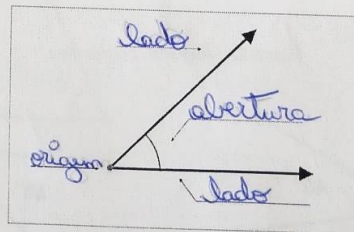 lado
abertura
origem
lado